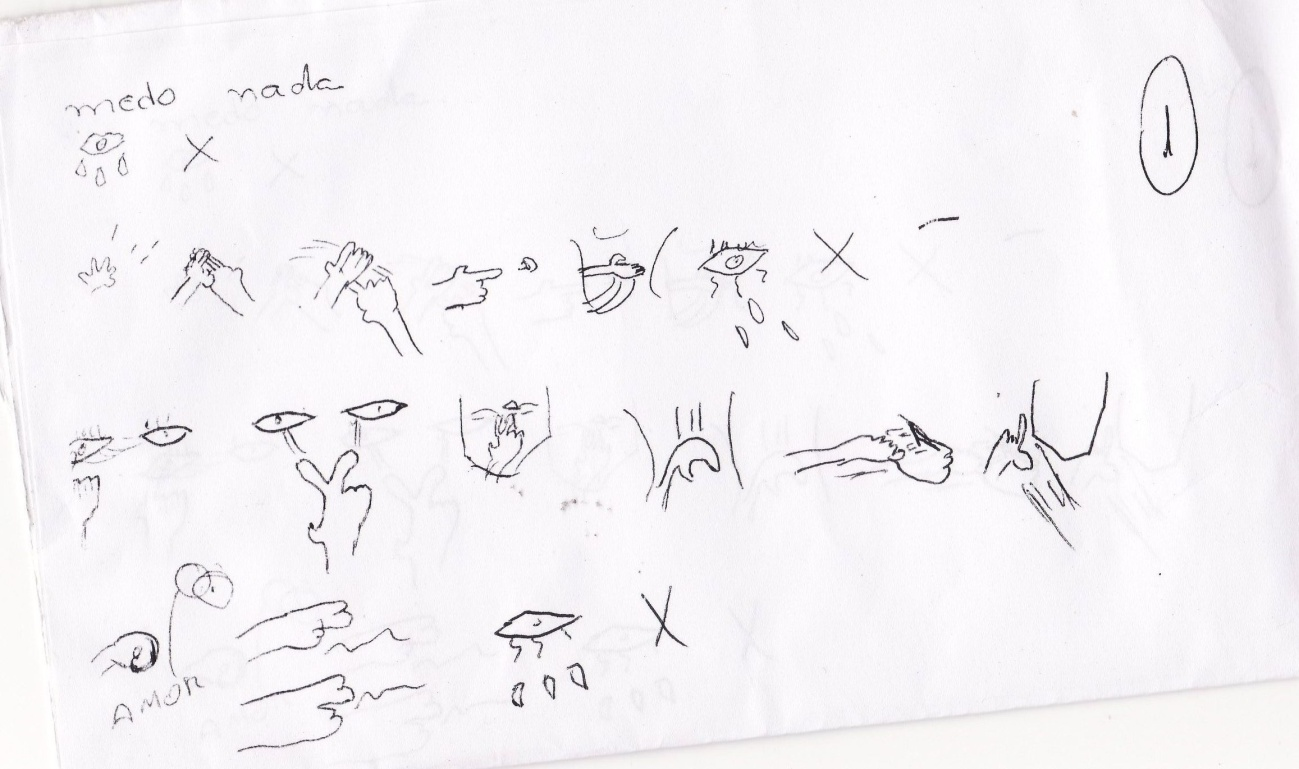 medo nada
1
AMOR